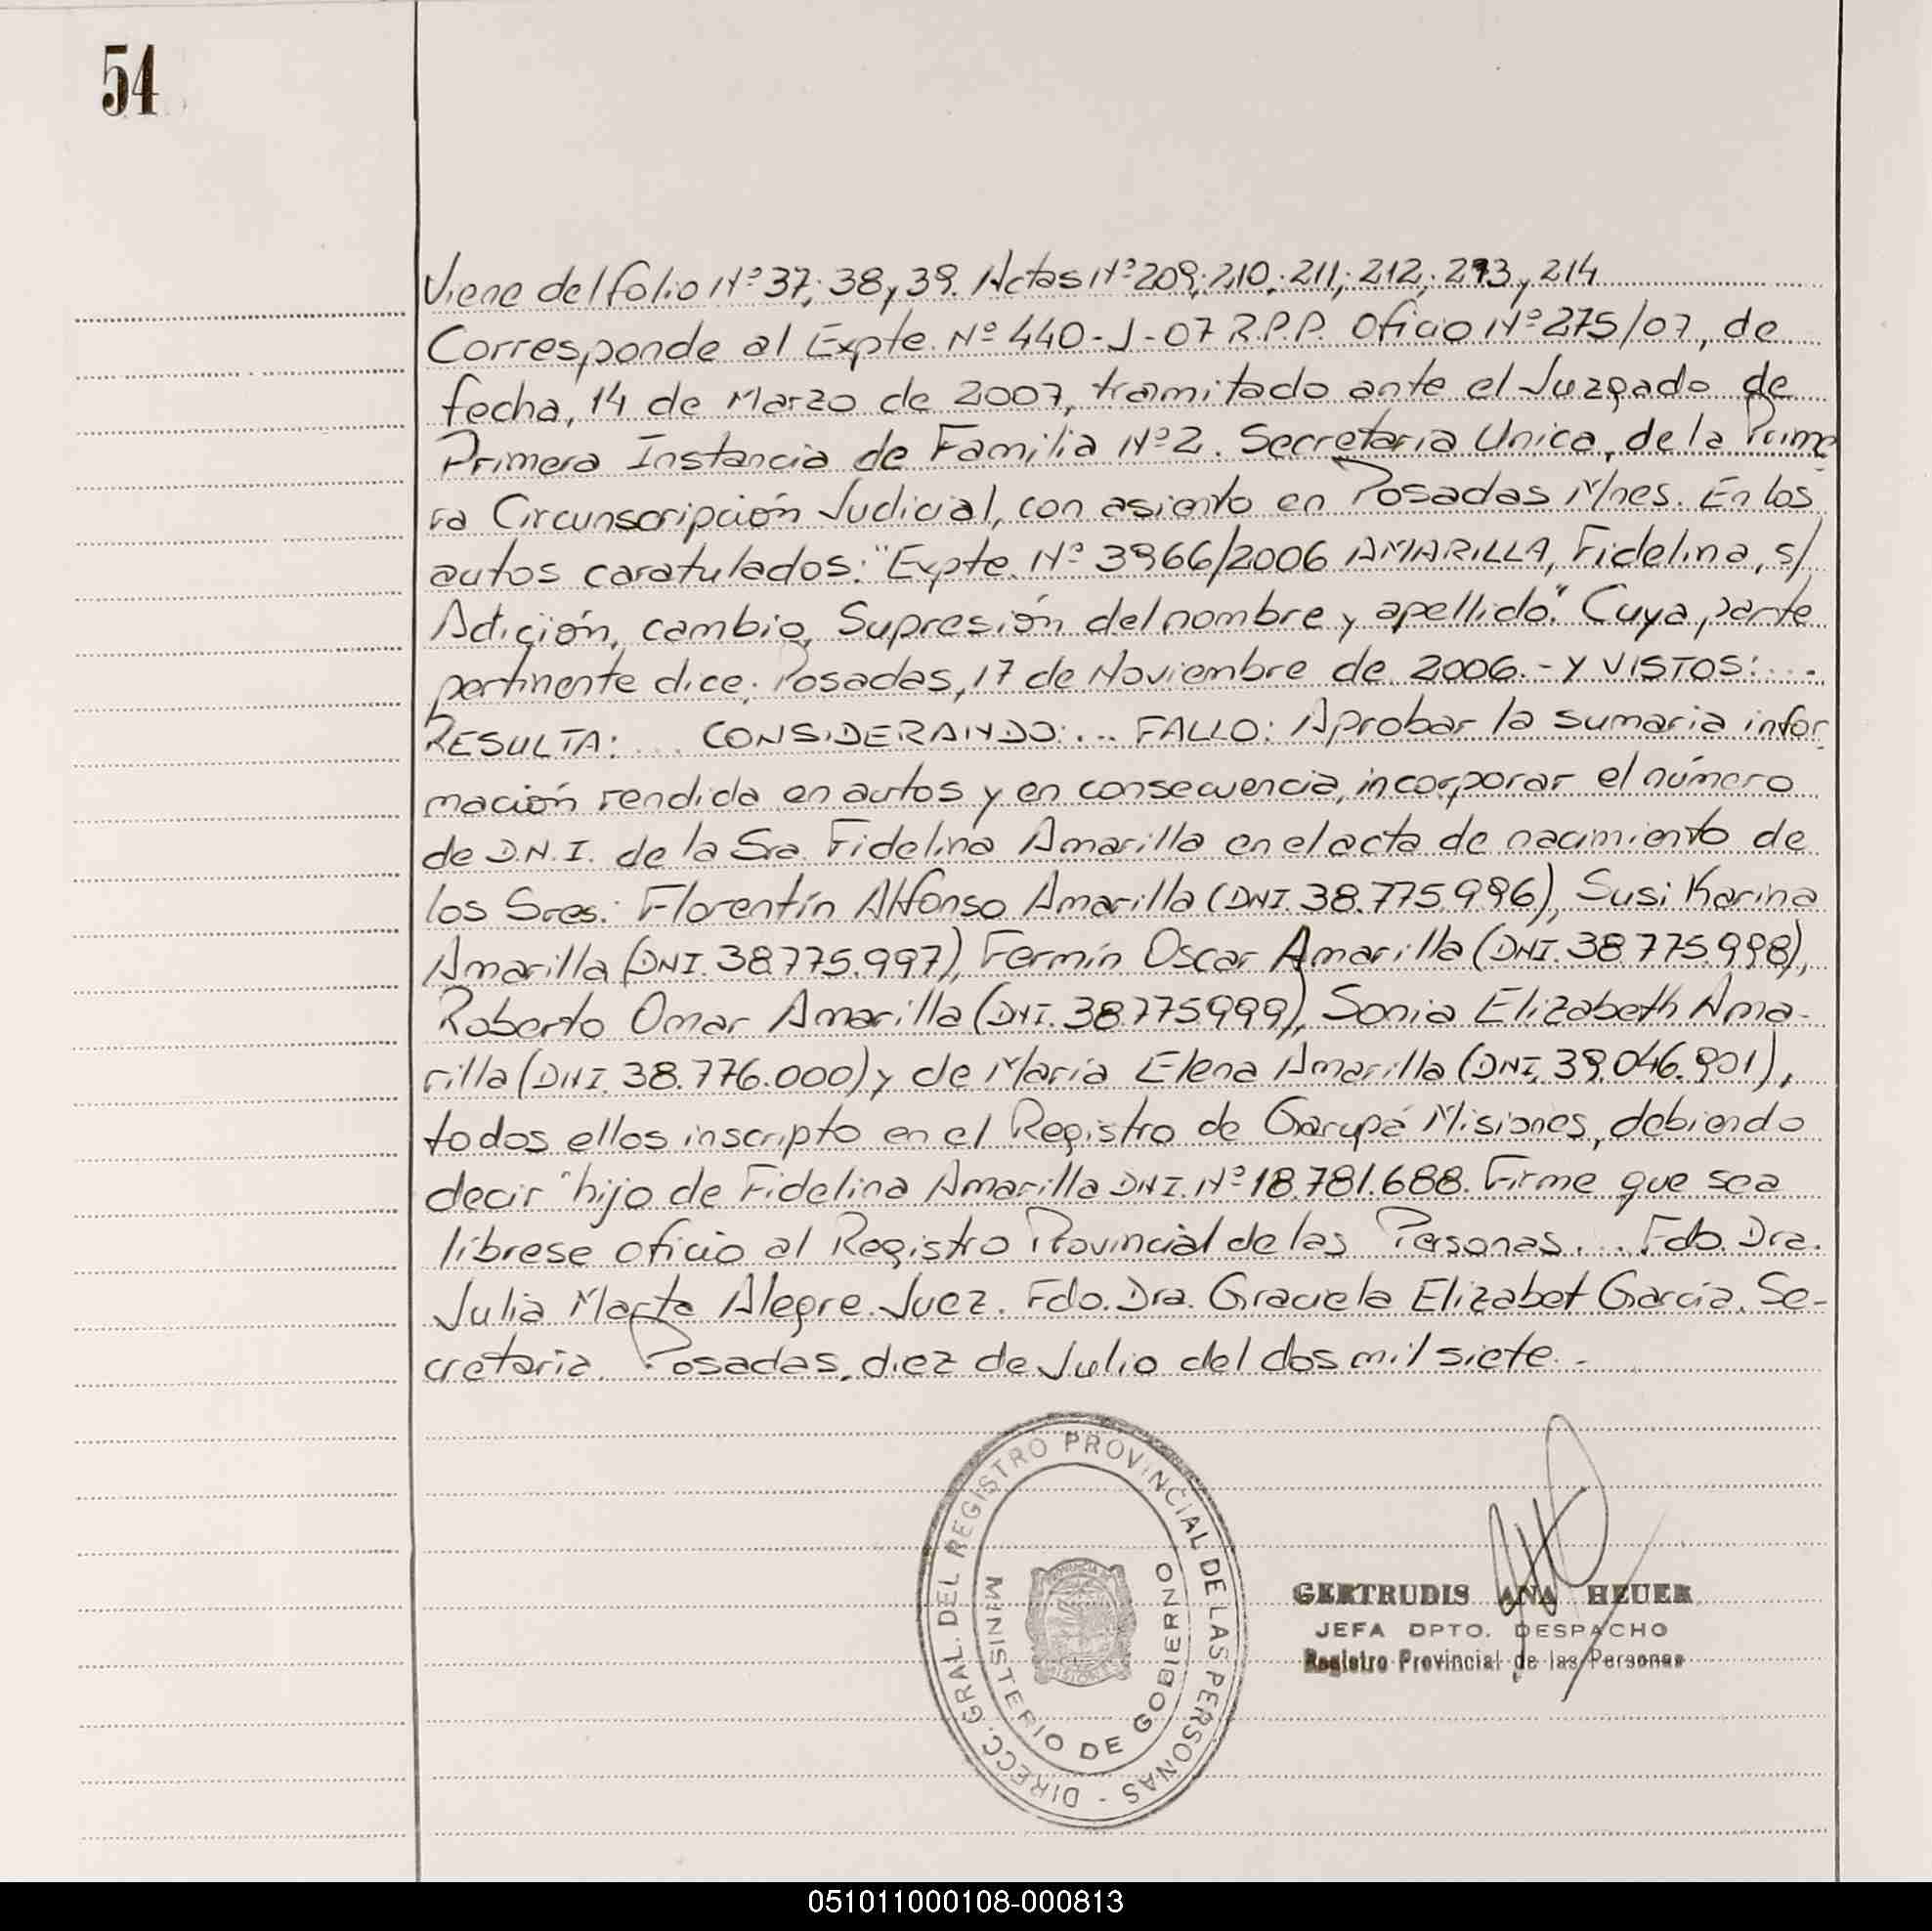 54
Viene del folio Nº 37; 38 y 39. Actas Nº 209; 210; 211; 212; 213 y 214
Corresponde al Expte. Nº 440-J-07 R.P.P. Oficio Nº 275/07, de
fecha, 14 de Marzo de 2007, tramitado ante el Juzgado de
Primera Instancia de Familia Nº 2. Secretaria Unica, de la Prime-
ra Circunscripción Judicial, con asiento en Posadas Mnes. En los
autos caratulados: "Expte. Nº 3966/2006 AMARILLA, Fidelina, s/
Adición, cambio, Supresión del nombre y apellido." Cuya parte
pertinente dice: Posadas, 17 de Noviembre de 2006.- Y VISTOS:...
RESULTA: ... CONSIDERANDO:... FALLO: Aprobar la sumaria infor-
mación rendida en autos y en consecuencia, incorporar el número
de D.N.I. de la Sra. Fidelina Amarilla en el acta de nacimiento de
los Sres.: Florentín Alfonso Amarilla (DNI. 38.775.996), Susi Karina
Amarilla (DNI. 38.775.997), Fermín Oscar Amarilla (DNI. 38.775.998),
Roberto Omar Amarilla (DNI. 38.775.999), Sonia Elizabeth Ama-
rilla (DNI. 38.776.000) y de María Elena Amarilla (DNI. 39.046.901),
todos ellos inscripto en el Registro de Garupá Misiones, debiendo
decir "hijo de Fidelina Amarilla DNI. Nº 18.781.688. Firme que sea
líbrese oficio al Registro Provincial de las Personas... Fdo. Dra.
Julia Marta Alegre. Juez. Fdo. Dra. Graciela Elizabet García. Se-
cretaria. Posadas, diez de Julio del dos mil siete.-
DIRECC. GRAL. DEL REGISTRO PROVINCIAL DE LAS PERSONAS -
MINISTERIO DE GOBIERNO
GERTRUDIS ANA HEUER
JEFA DPTO. DESPACHO
Registro Provincial de las Personas
051011000108-000813